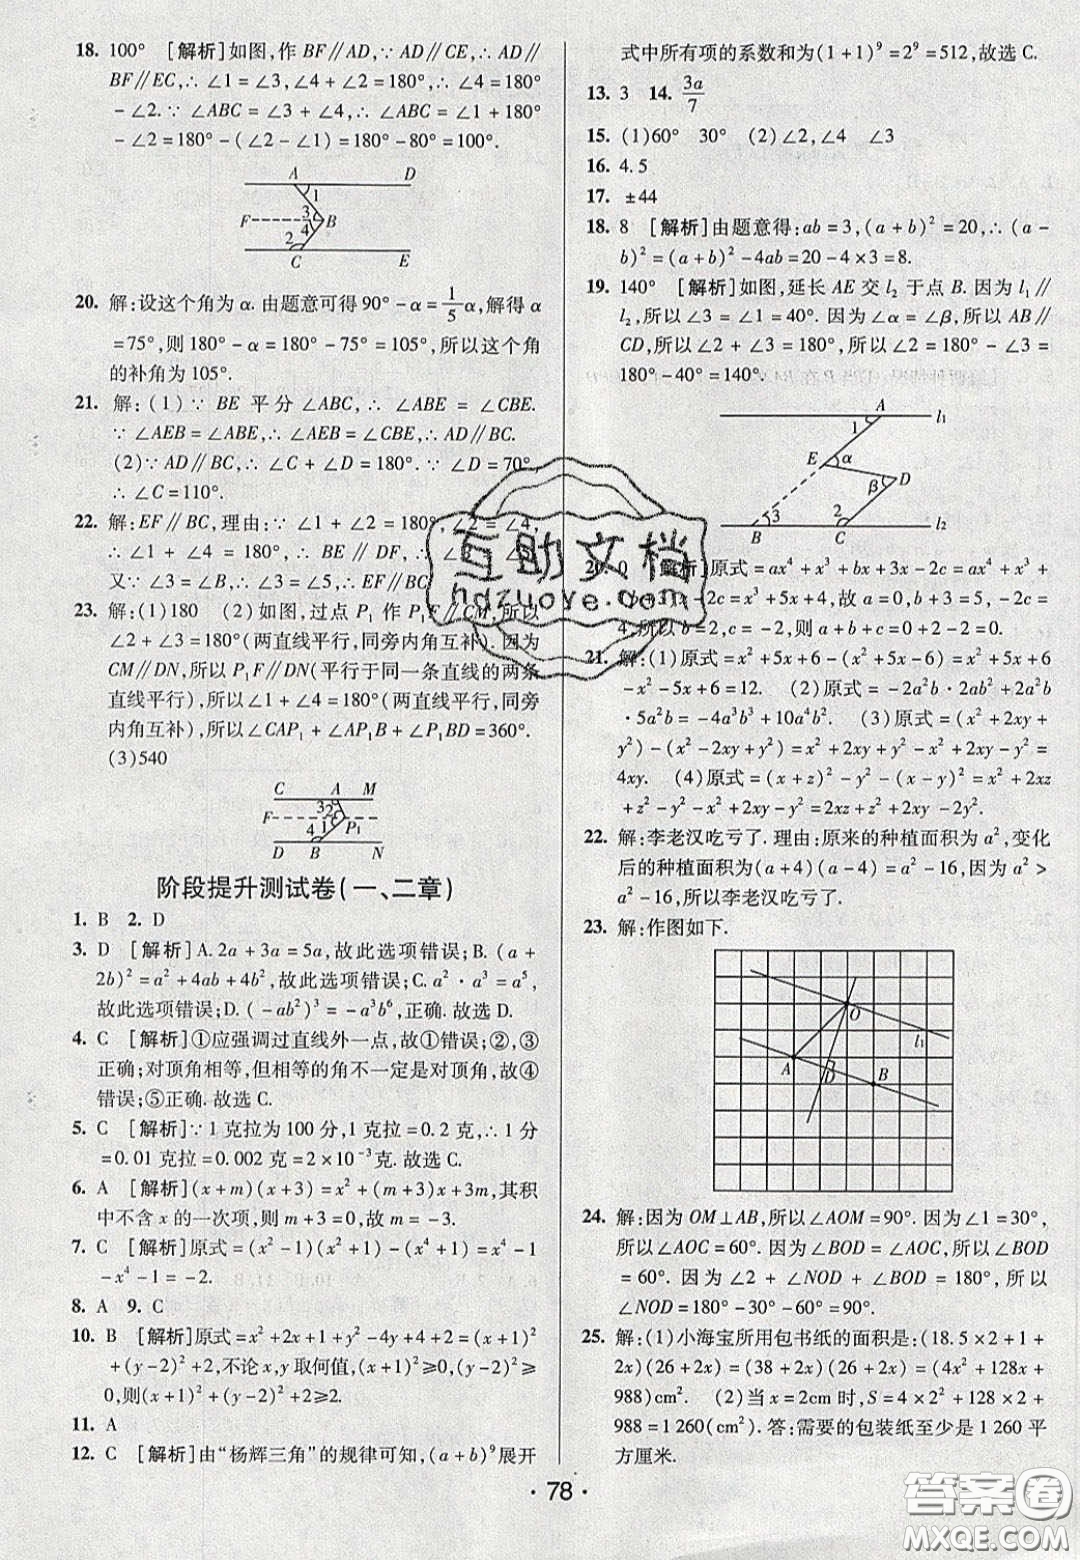 18. 100° [解析]如图,作 BF∥AD,∵AD∥CE,∴AD∥
BF∥EC,∴∠1=∠3,∠4+∠2=180°,∴∠4=180°
-∠2.∵∠ABC=∠3+∠4,∴∠ABC=∠1+180°
-∠2=180°-(∠2-∠1)=180°-80°=100°.
A D
1
F 3 B
4
2
C E
20. 解:设这个角为 α.由题意可得 90°-α=1/5α,解得 α
=75°,则 180°-α=180°-75°=105°,所以这个角
的补角为 105°.
21. 解:(1)∵BE 平分∠ABC,∴∠ABE=∠CBE.
∵∠AEB=∠ABE,∴∠AEB=∠CBE,∴AD∥BC.
(2)∵AD∥BC,∴∠C+∠D=180°.∵∠D=70°,
∴∠C=110°.
22. 解:EF∥BC,理由:∵∠1+∠2=180°,∠2=∠4,
∴∠1+∠4=180°,∴BE∥DF,∴∠3=∠5.
又∵∠3=∠1,∴∠1=∠5,∴EF∥BC.
23. 解:(1)180 (2)如图,过点 P₁ 作 P₁F∥CM,所以
∠2+∠3=180°(两直线平行,同旁内角互补).因为
CM∥DN,所以 P₁F∥DN(平行于同一条直线的两条
直线平行),所以∠1+∠4=180°(两直线平行,同旁
内角互补),所以∠CAP₁+∠AP₁B+∠P₁BD=360°.
(3)540
C A M
3 2
F 1 P₁
4
D B N
阶段提升测试卷(一、二章)
1. B 2. D
3. D [解析]A.2a+3a=5a,故此选项错误;B.(a+
2b)²=a²+4ab+4b²,故此选项错误;C.a²·a³=a⁵,
故此选项错误;D.(-ab²)³=-a³b⁶,正确.故选 D.
4. C [解析]①应强调过直线外一点,故①错误;②,③
正确;对顶角相等,但相等的角不一定是对顶角,故④
错误;⑤正确.故选 C.
5. C [解析]∵1 克拉为 100 分,1 克拉=0.2 克,∴1 分
=0.01 克拉=0.002 克=2×10⁻³克.故选 C.
6. A [解析](x+m)(x+3)=x²+(m+3)x+3m,其积
中不含 x 的一次项,则 m+3=0,故 m=-3.
7. C [解析]原式=(x²-1)(x²+1)-(x⁴+1)=x⁴-1
-x⁴-1=-2.
8. A 9. C
10. B [解析]原式=x²+2x+1+y²-4y+4+2=(x+1)²
+(y-2)²+2,不论 x,y 取何值,(x+1)²≥0,(y-2)²≥
0,则(x+1)²+(y-2)²+2≥2.
11. A
12. C [解析]由“杨辉三角”的规律可知,(a+b)⁹展开
式中所有项的系数和为(1+1)⁹=2⁹=512,故选 C.
13. 3 14. 3a/7
15. (1)60° 30° (2)∠2,∠4 ∠3
16. 4.5
17. ±44
18. 8 [解析]由题意得:ab=3,(a+b)²=20,∴(a-
b)²=(a+b)²-4ab=20-4×3=8.
19. 140° [解析]如图,延长 AE 交 l₂ 于点 B.因为 l₁∥
l₂,所以∠3=∠1=40°.因为∠α=∠β,所以 AB∥
CD,所以∠2+∠3=180°,所以∠2=180°-∠3=
180°-40°=140°.
A l₁
1
E α
β D
3 2
B C l₂
20. 0 [解析]原式=ax⁴+x³+bx+3x-2c=ax⁴+x³+
(b+3)x-2c=x³+5x+4,故 a=0,b+3=5,-2c=
4,所以 b=2,c=-2,则 a+b+c=0+2-2=0.
21. 解:(1)原式=x²+5x+6-(x²+5x-6)=x²+5x+6
-x²-5x+6=12. (2)原式=-2a²b·2ab²+2a²b
·5a²b=-4a³b³+10a⁴b². (3)原式=(x²+2xy+
y²)-(x²-2xy+y²)=x²+2xy+y²-x²+2xy-y²=
4xy. (4)原式=(x+z)²-y²-(x-y)²=x²+2xz
+z²-y²-x²+2xy-y²=2xz+z²+2xy-2y².
22. 解:李老汉吃亏了.理由:原来的种植面积为 a²,变化
后的种植面积为(a+4)(a-4)=a²-16,因为 a²>
a²-16,所以李老汉吃亏了.
23. 解:作图如下.
O
l₁
A
D B
24. 解:因为 OM⊥AB,所以∠AOM=90°.因为∠1=30°,
所以∠AOC=60°.因为∠BOD=∠AOC,所以∠BOD
=60°.因为∠2+∠NOD+∠BOD=180°,所以
∠NOD=180°-30°-60°=90°.
25. 解:(1)小海宝所用包书纸的面积是:(18.5×2+1+
2x)(26+2x)=(38+2x)(26+2x)=(4x²+128x+
988)cm². (2)当 x=2cm 时,S=4×2²+128×2+
988=1 260(cm²).答:需要的包装纸至少是 1 260 平
方厘米.
·78·
互助文档
hdzuoye.com
答案圈
MXQE.COM